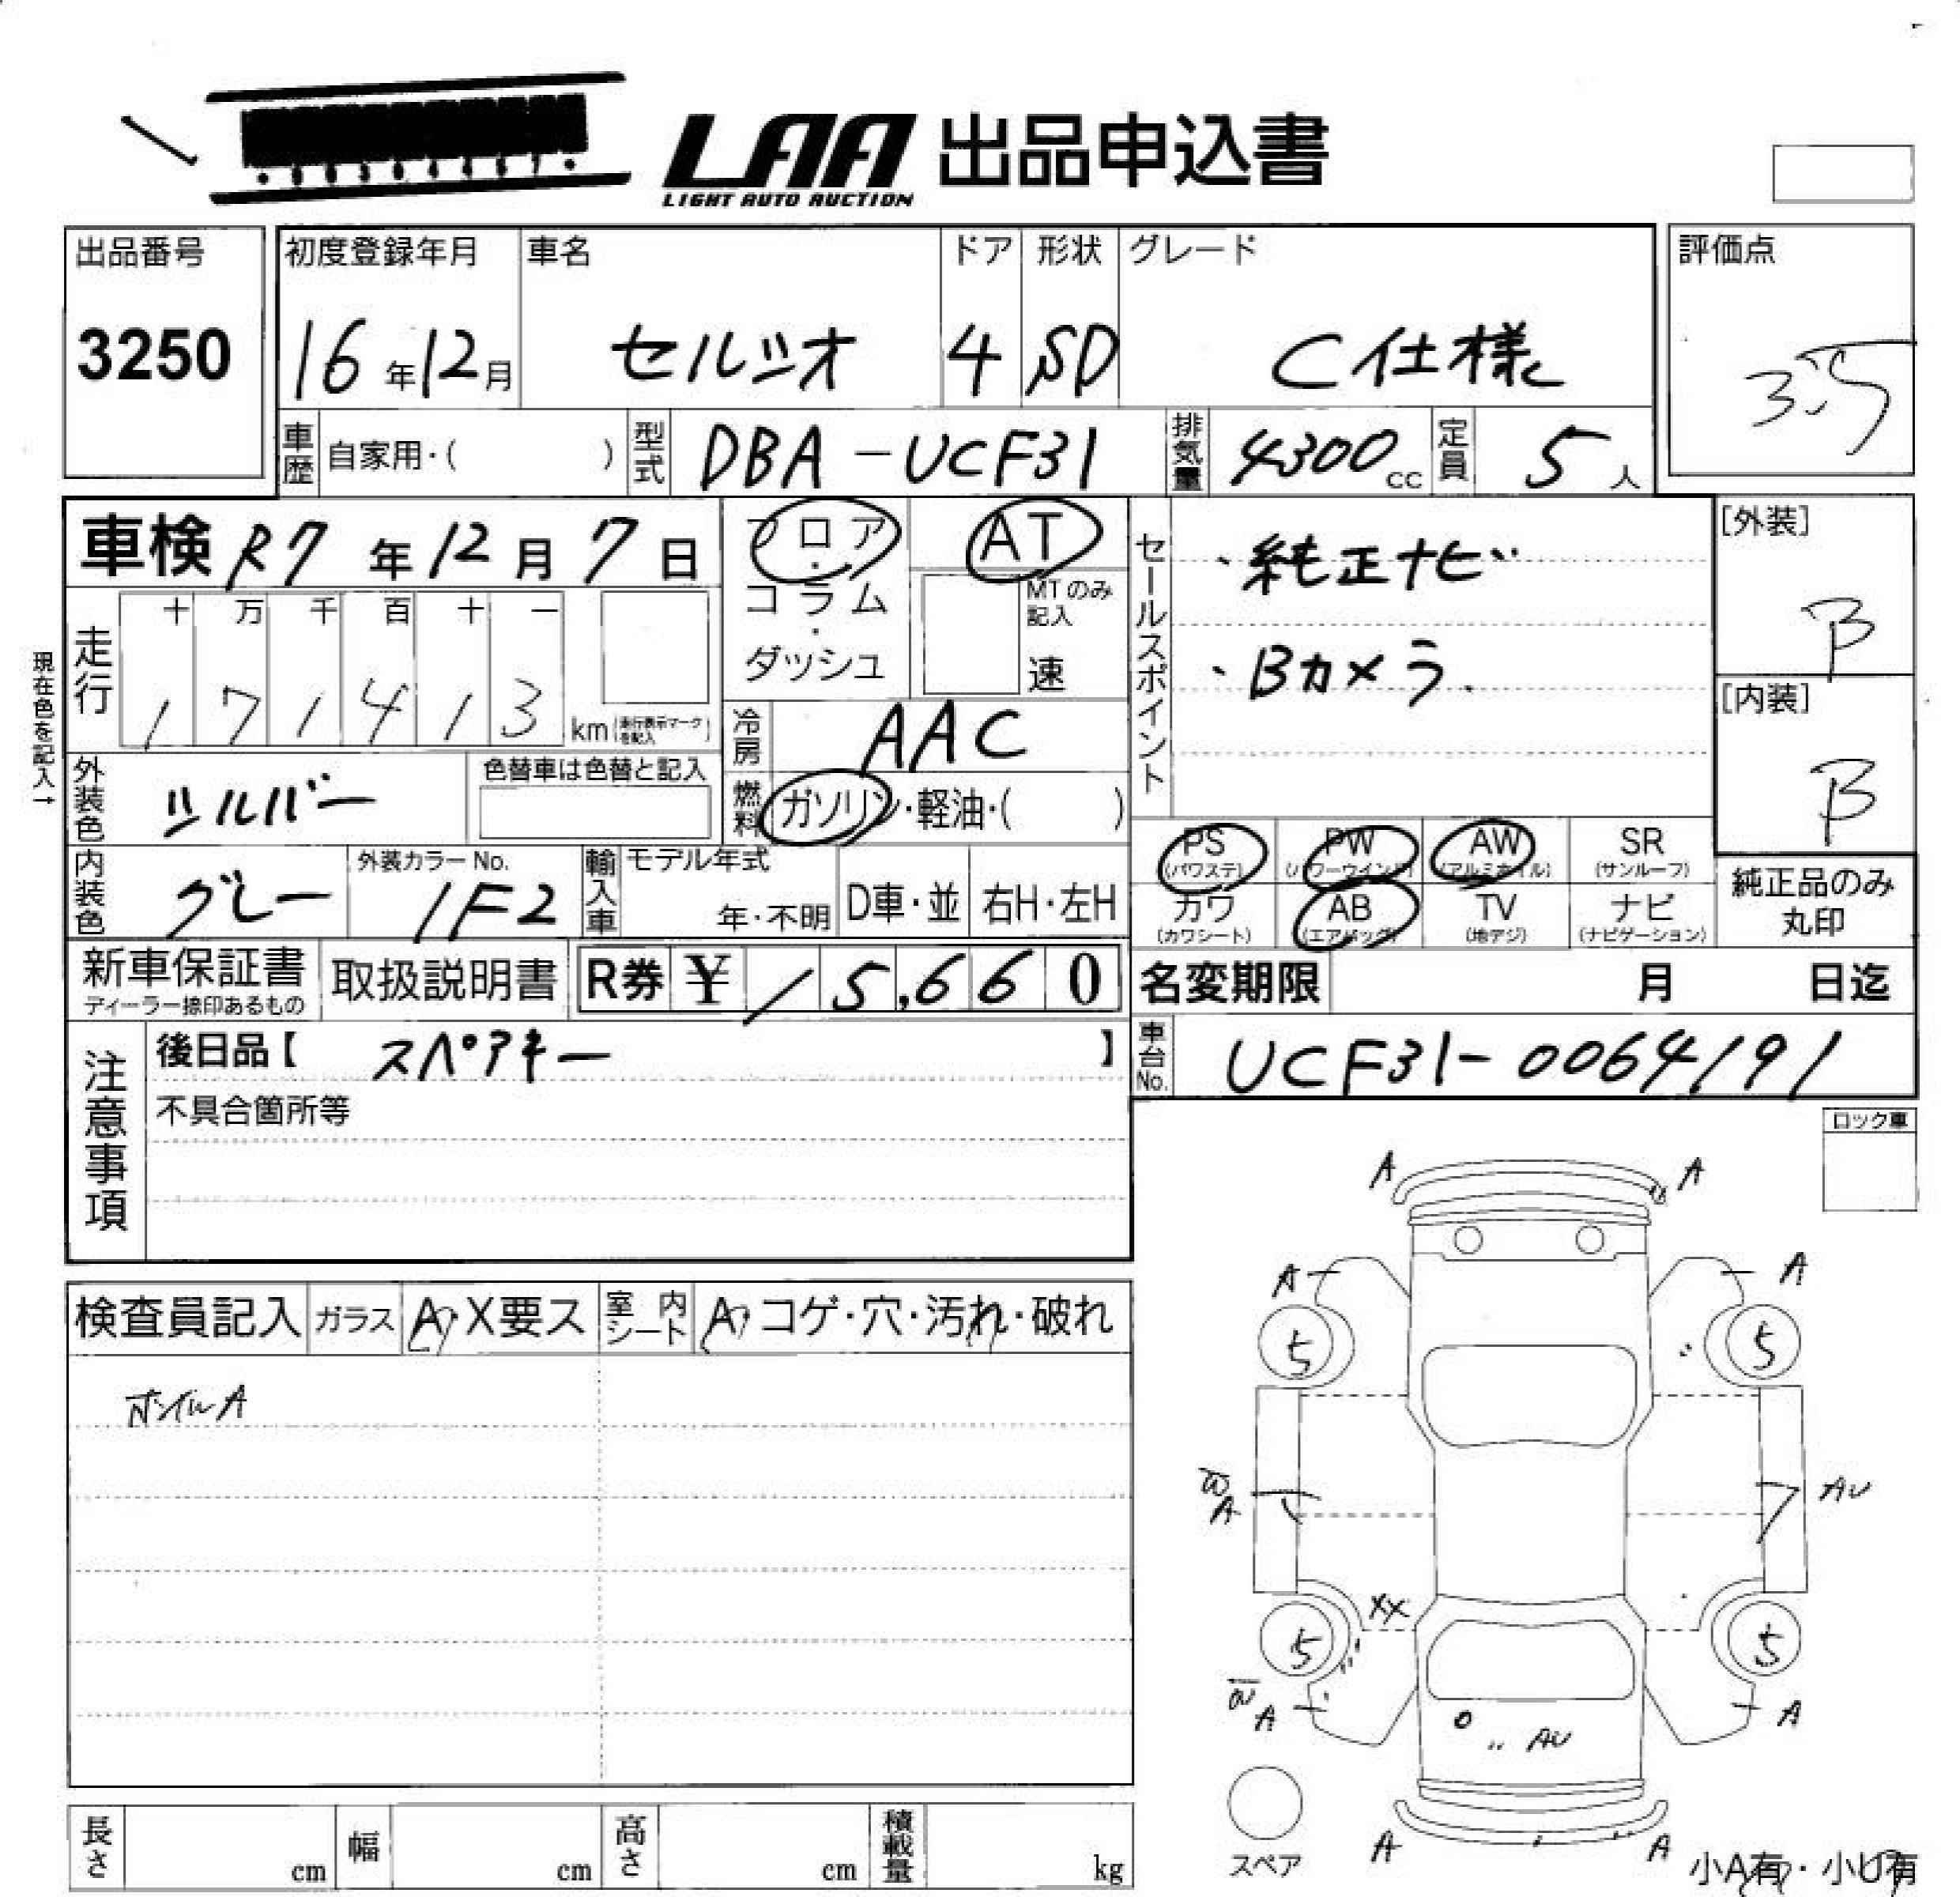 LAA 出品申込書
LIGHT AUTO AUCTION
出品番号 3250
初度登録年月 16年12月
車名 セルシオ
ドア 4
形状 SD
グレード C仕様
評価点 3.5
車歴 自家用・( )
型式 DBA-UCF31
排気量 4300cc
定員 5人
車検 R7年12月7日
フロア・コラム・ダッシュ
AT
MTのみ記入
速
セールスポイント
・純正ナビ
・Bカメラ.
[外装] B
[内装] B
現在色を記入→
走行 十 万 千 百 十 一
1 7 1 4 1 3 km (走行表示マークを記入)
冷房 AAC
外装色 シルバー
色替車は色替と記入
燃料 ガソリン・軽油・( )
内装色 グレー
外装カラーNo. 1F2
輸入車 モデル年式 年・不明
D車・並 右H・左H
PS (パワステ)
PW (パワーウインド)
AW (アルミホイル)
SR (サンルーフ)
カワ (カワシート)
AB (エアバッグ)
TV (地デジ)
ナビ (ナビゲーション)
純正品のみ丸印
新車保証書 ディーラー捺印あるもの
取扱説明書
R券 ¥15,660
名変期限 月 日迄
注意事項
後日品【 スペアキー 】
不具合箇所等
車台No. UCF31-0064191
ロック車
検査員記入 ガラス A・X要ス
室内シート A・コゲ・穴・汚れ・破れ
ホイルA
A A
A A
5 5
A AU
XX
5 5
A A
AU
A A
スペア
小A有・小U有
長さ cm 幅 cm 高さ cm 積載量 kg